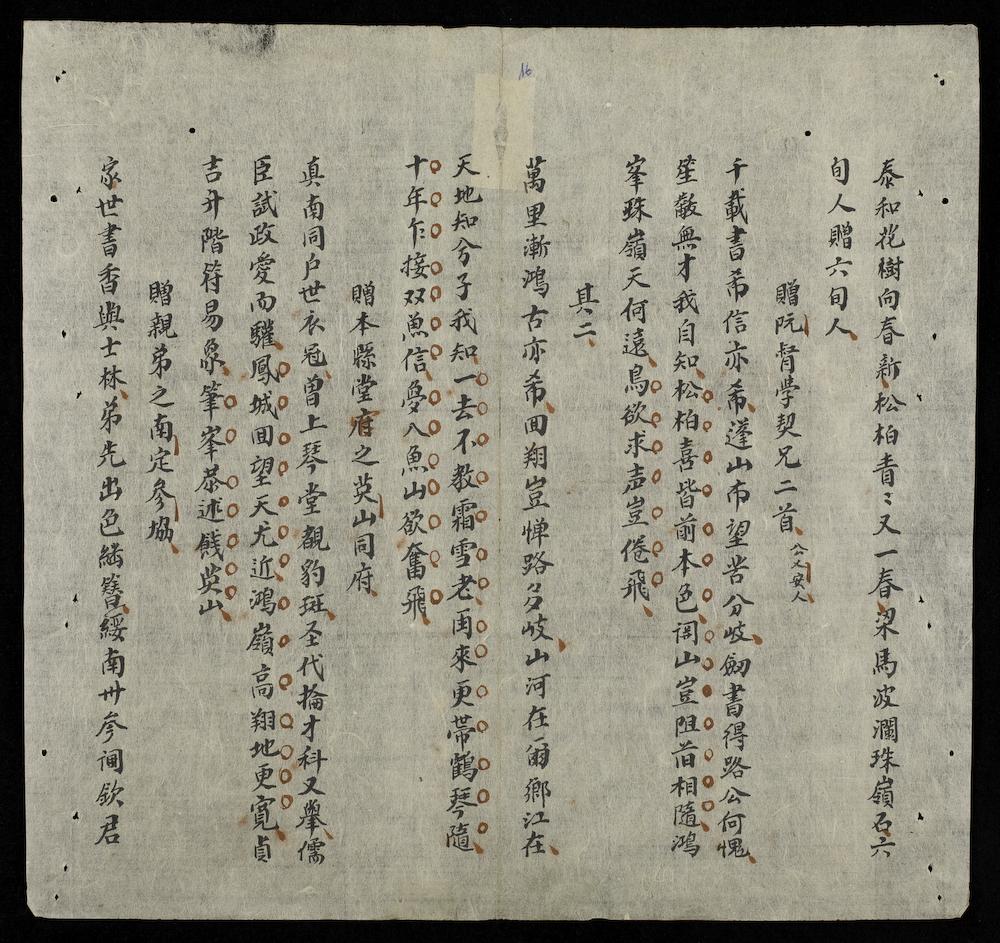 泰和花樹向春新松柏青〻又一春梁馬波瀾珠嶺石六
旬人贈六旬人
贈阮督学契兄二首 公乂安人
千載書希信亦希蓬山市望苦分岐劒書得路公何愧
笙散無才我自知松柏喜皆前本色関山豈阻昔相隨鴻
峯珠嶺天何遠鳥欲求声豈倦飛
其二
萬里漸鴻古亦希囬翔豈惮路多岐山河在爾鄉江在
天地知兮子我知一去不教霜雪老再來更帯鶴琴隨
十年乍接双魚信夢入魚山欲奮飛
贈本縣堂府之英山同府
真南同户世衣冠曾上琴堂覩豹斑圣代掄才科又舉儒
臣試政愛而驩鳳城囬望天尤近鴻嶺高翔地更寬貞
吉升階符易象筆峯恭述餞英山
贈親弟之南定參協
家世書香與士林弟先出色綰簪綏南卅參闽欽君
16